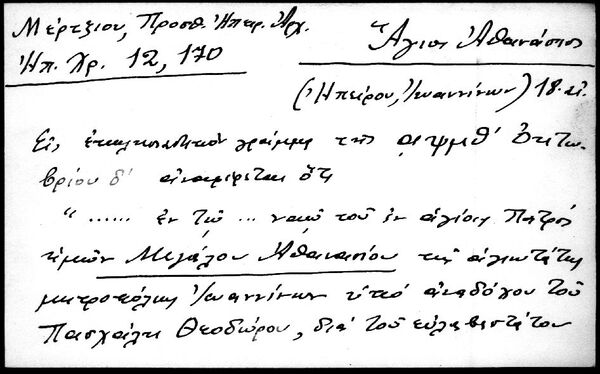 Μέρτζιου, Προσθ. Ἠπειρ. Ἀρχ.
Ἠπ. Χρ. 12, 170
Ἅγιος Ἀθανάσιος
(Ἠπείρου, Ἰωαννίνων) 18. αἰ.
Εἰς ἐκκλησιαστικὸν γράμμα τῆς ͵αψμθʹ Ὀκτω-
βρίου δʹ ἀναφέρεται ὅτι
“ ...... ἐν τῷ ... ναῷ τοῦ ἐν ἁγίοις Πατρὸς
ἡμῶν Μεγάλου Ἀθανασίου τῆς ἁγιωτάτης
μητροπόλεως Ἰωαννίνων ὑπὸ ἀναδόχου τοῦ
Πασχάλη Θεοδώρου, διὰ τοῦ εὐλαβεστάτου